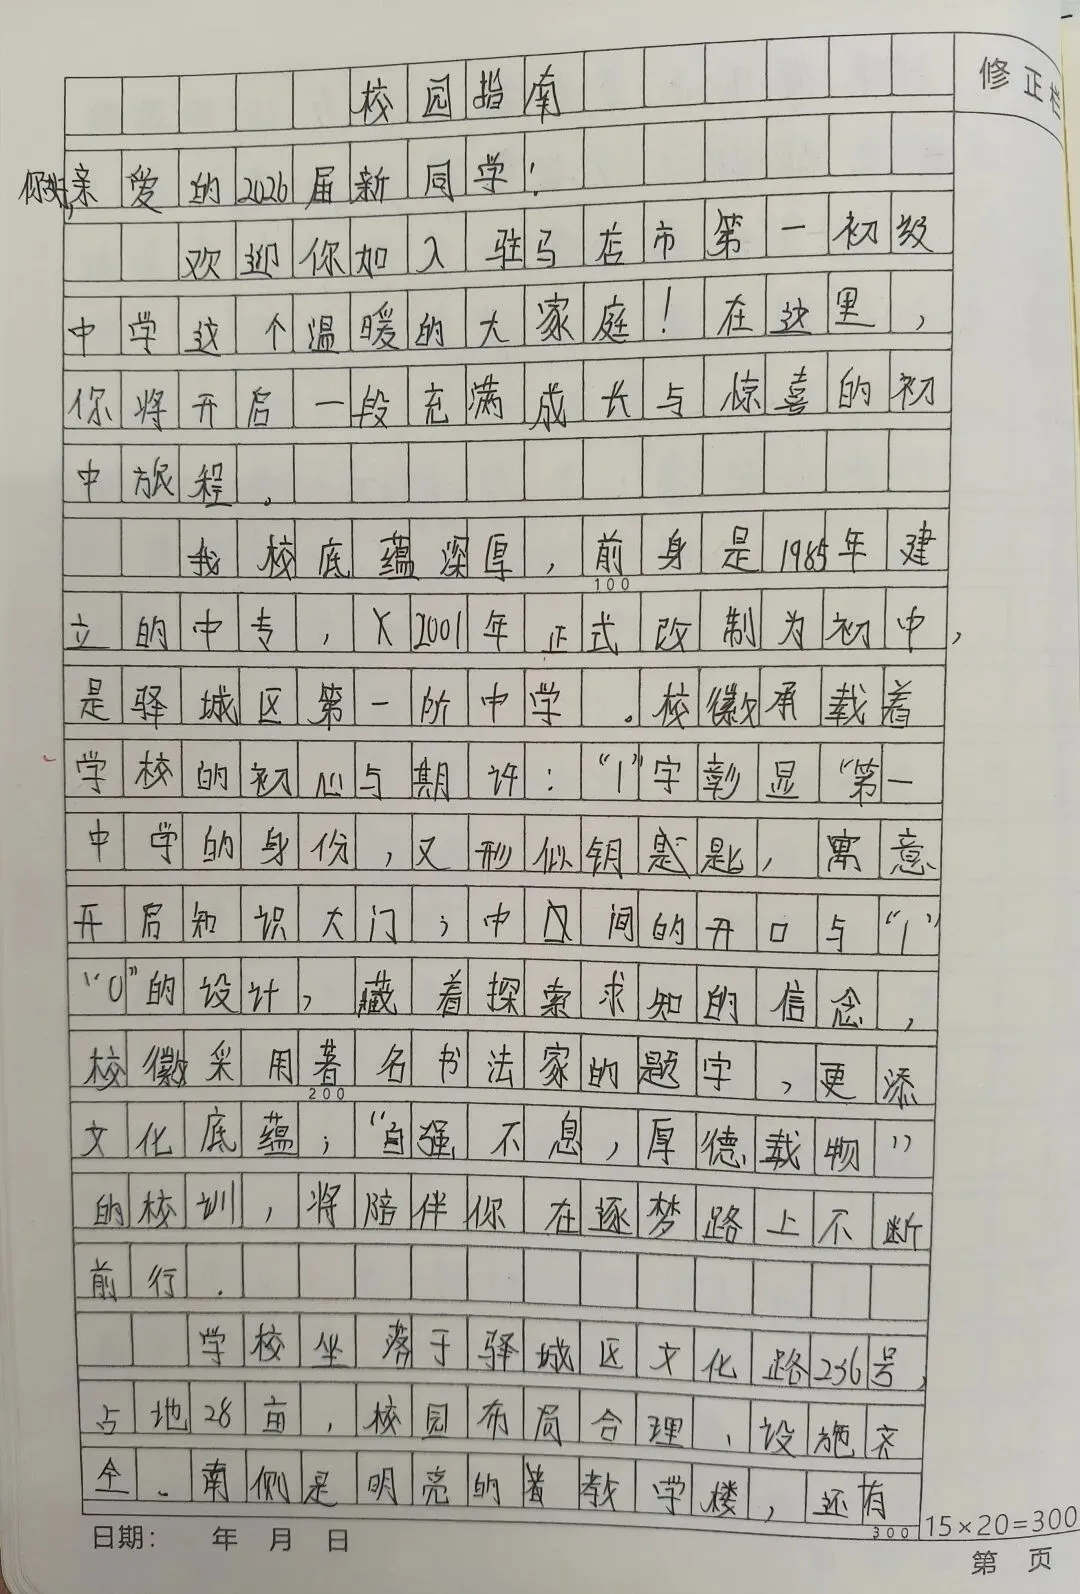 修正栏
校园指南
你好,亲爱的2026届新同学!
欢迎你加入驻马店市第一初级
中学这个温暖的大家庭!在这里,
你将开启一段充满成长与惊喜的初
中旅程。
我校底蕴深厚,前身是1985年建
100
立的中专,2001年正式改制为初中,
是驿城区第一所中学。校徽承载着
学校的初心与期许:“1”字彰显“第一
中学的身份,又形似钥匙,寓意
开启知识大门;中间的开口与“1”
“0”的设计,藏着探索求知的信念,
校徽采用著名书法家的题字,更添
200
文化底蕴;“自强不息,厚德载物”
的校训,将陪伴你在逐梦路上不断
前行.
学校坐落于驿城区文化路236号,
占地28亩,校园布局合理、设施齐
全.南侧是明亮的教学楼,还有
300
15×20=300
日期: 年 月 日
第 页